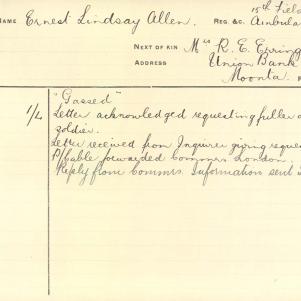 NAME Ernest Lindsay Allen. REG. &C. 15th Field
Ambula
NEXT OF KIN Mrs R. E. Erring
ADDRESS Union Bank
Moonta.
"Gassed"
1/4 Letter acknowledged requesting fuller
soldier.
Letter received from Inquirer giving reques
P/Cable forwarded Commrs London.
Reply from Commrs. Information sent